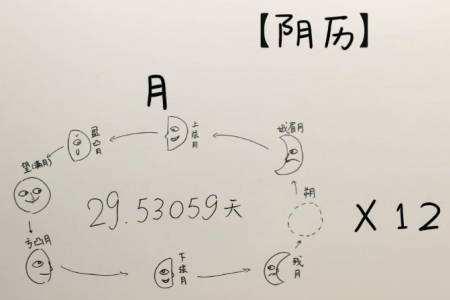 【阴历】
月
上弦月
盈凸月
望(满月)
朔
29.53059天
X12
亏凸月
下弦月
残月